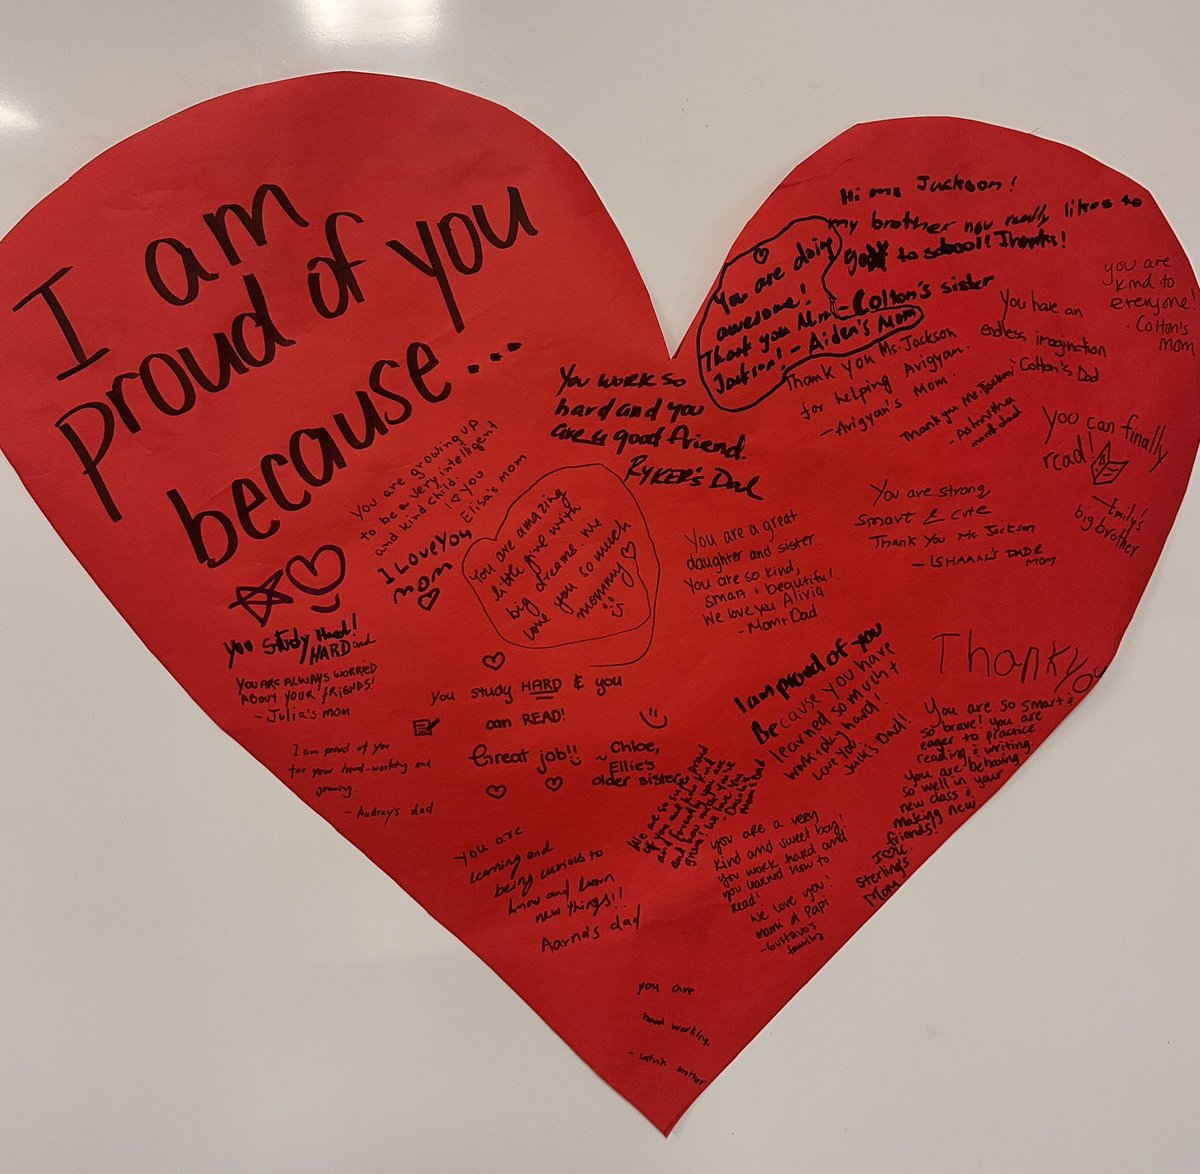 I am
proud of you
because...
Hi Ms Jackson!
my brother now really likes to
go to school! Thanks!
- Colton's sister
You are doing
awesome!
Thank you Ms.
Jackson! - Aiden's Mom
you are
kind to
everyone!
- Colton's
mom
You have an
endless imagination
- Colton's Dad
Thank you Ms. Jackson
for helping Avigyan.
- Avigyan's Mom.
Thank you Ms. Jackson
You work so
hard and you
are a good friend.
RYKER'S Dad
You can finally
read!
- Emily's
big brother
You are growing up
to be a very intelligent
and kind child.
I ♡ you
Elisa's mom
I LOVE YOU
MOM
You are amazing
little girl with
big dreams. We
love you so much
mommy
You are strong
smart & cute
Thank You Ms Jackson
- ISHAAN'S DAD &
MOM
You are a great
daughter and sister.
You are so kind,
smart + beautiful.
We love you Alivia
- Mom + Dad
you study Hard!
HARD and
YOU ARE ALWAYS WORRIED
ABOUT YOUR FRIENDS!
- Julia's mom
You study HARD & you
can READ!
Great job!!
~ Chloe,
Ellie's
older sister
I am proud of you
for your hard-working and
growing.
- Audrey's dad
I am proud of you
Because you have
learned so much +
work + play hard!
Love You
Jack's Dad!
Thank you
You are so smart &
so brave! you are
eager to practice
reading & writing.
you are behaving
so well in your
new class &
making new
friends!
I ♡ u.
Sterling's
Mom
We are so super proud
of you
and friendly you are
and how
grown! We love you
you are a very
kind and sweet boy!
you work hard and
you learned how to
Read!
we love you!
mami & Papi
- Gustavo's
family
You are
learning and
being curious to
know and learn
new things!!
Aarna's dad
you are
hard working.
- brother